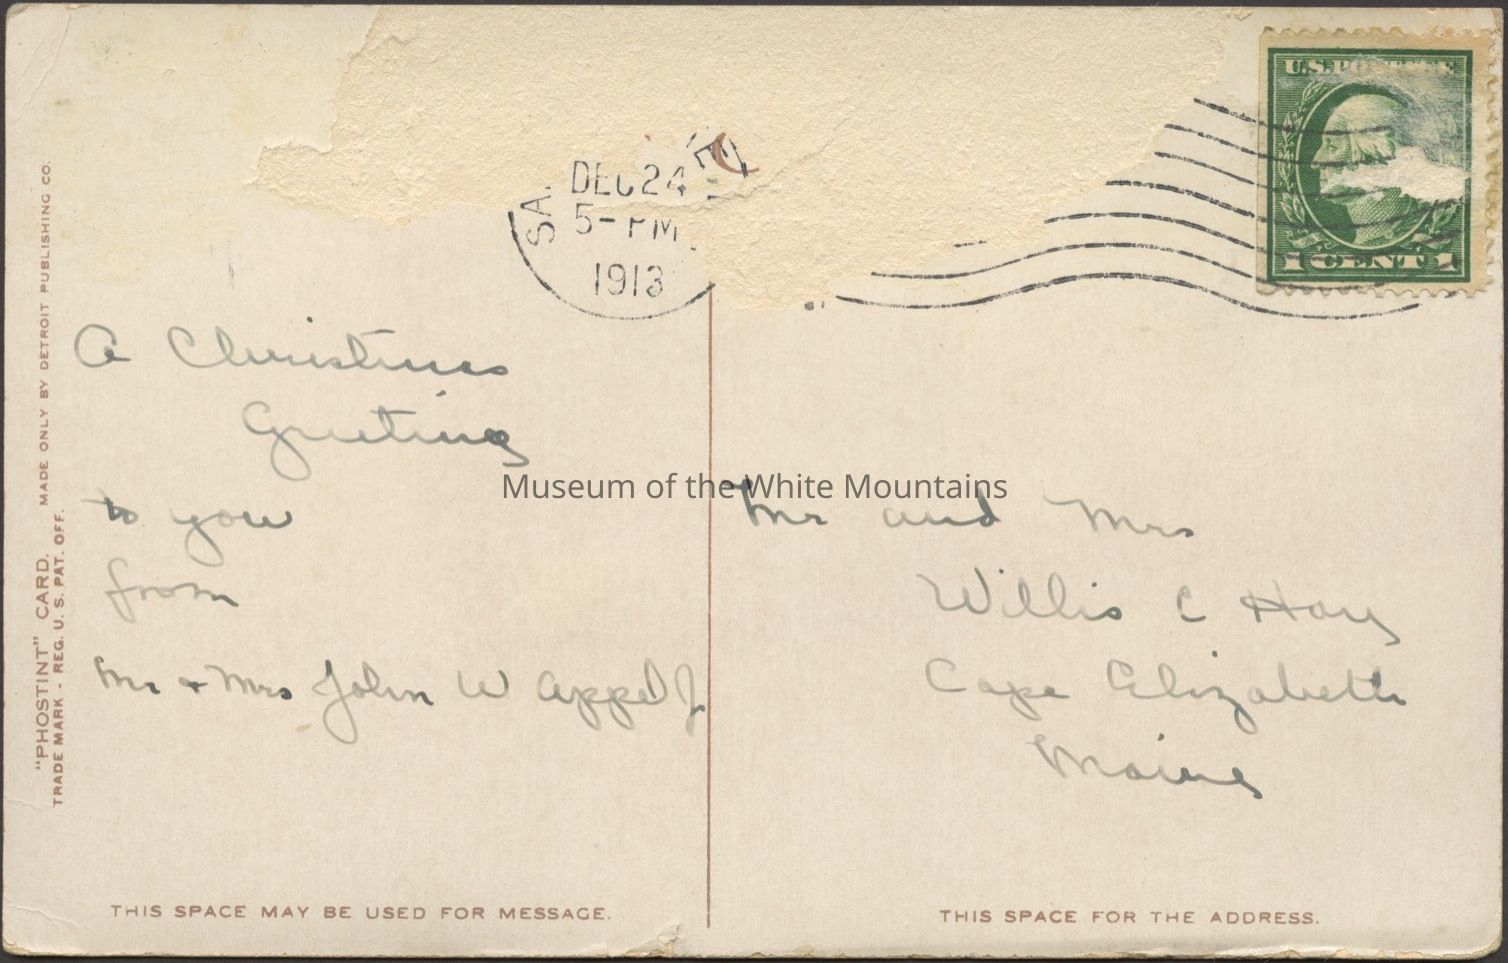 SA
E
DEC 24
5- PM
1913
U.S. POSTAGE
1 CENT 1
A Christmas
Greeting
to you
from
Mr & Mrs John W Appel Jr
Mr and Mrs
Willis C Hay
Cape Elizabeth
Maine
Museum of the White Mountains
"PHOSTINT" CARD. MADE ONLY BY DETROIT PUBLISHING CO.
TRADE MARK - REG. U. S. PAT. OFF.
THIS SPACE MAY BE USED FOR MESSAGE.
THIS SPACE FOR THE ADDRESS.